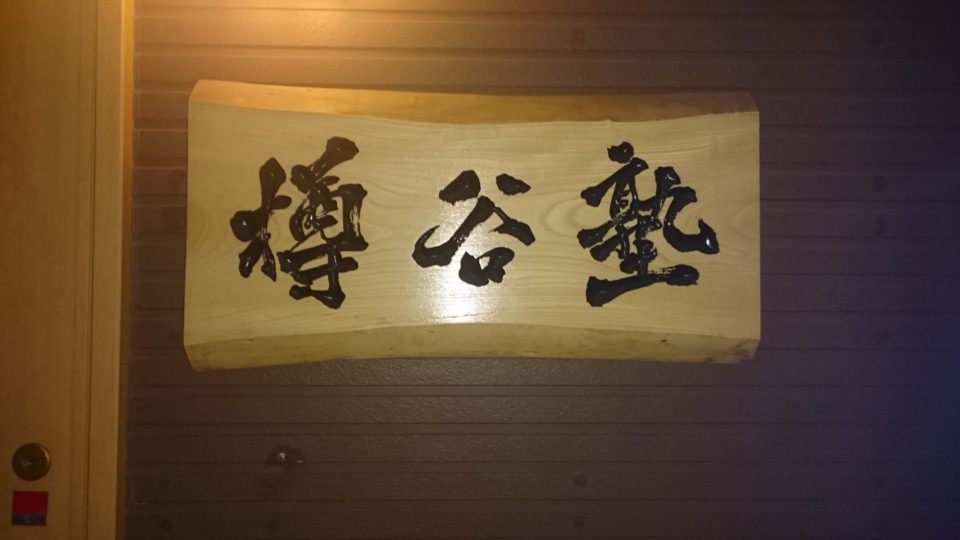 樽谷塾